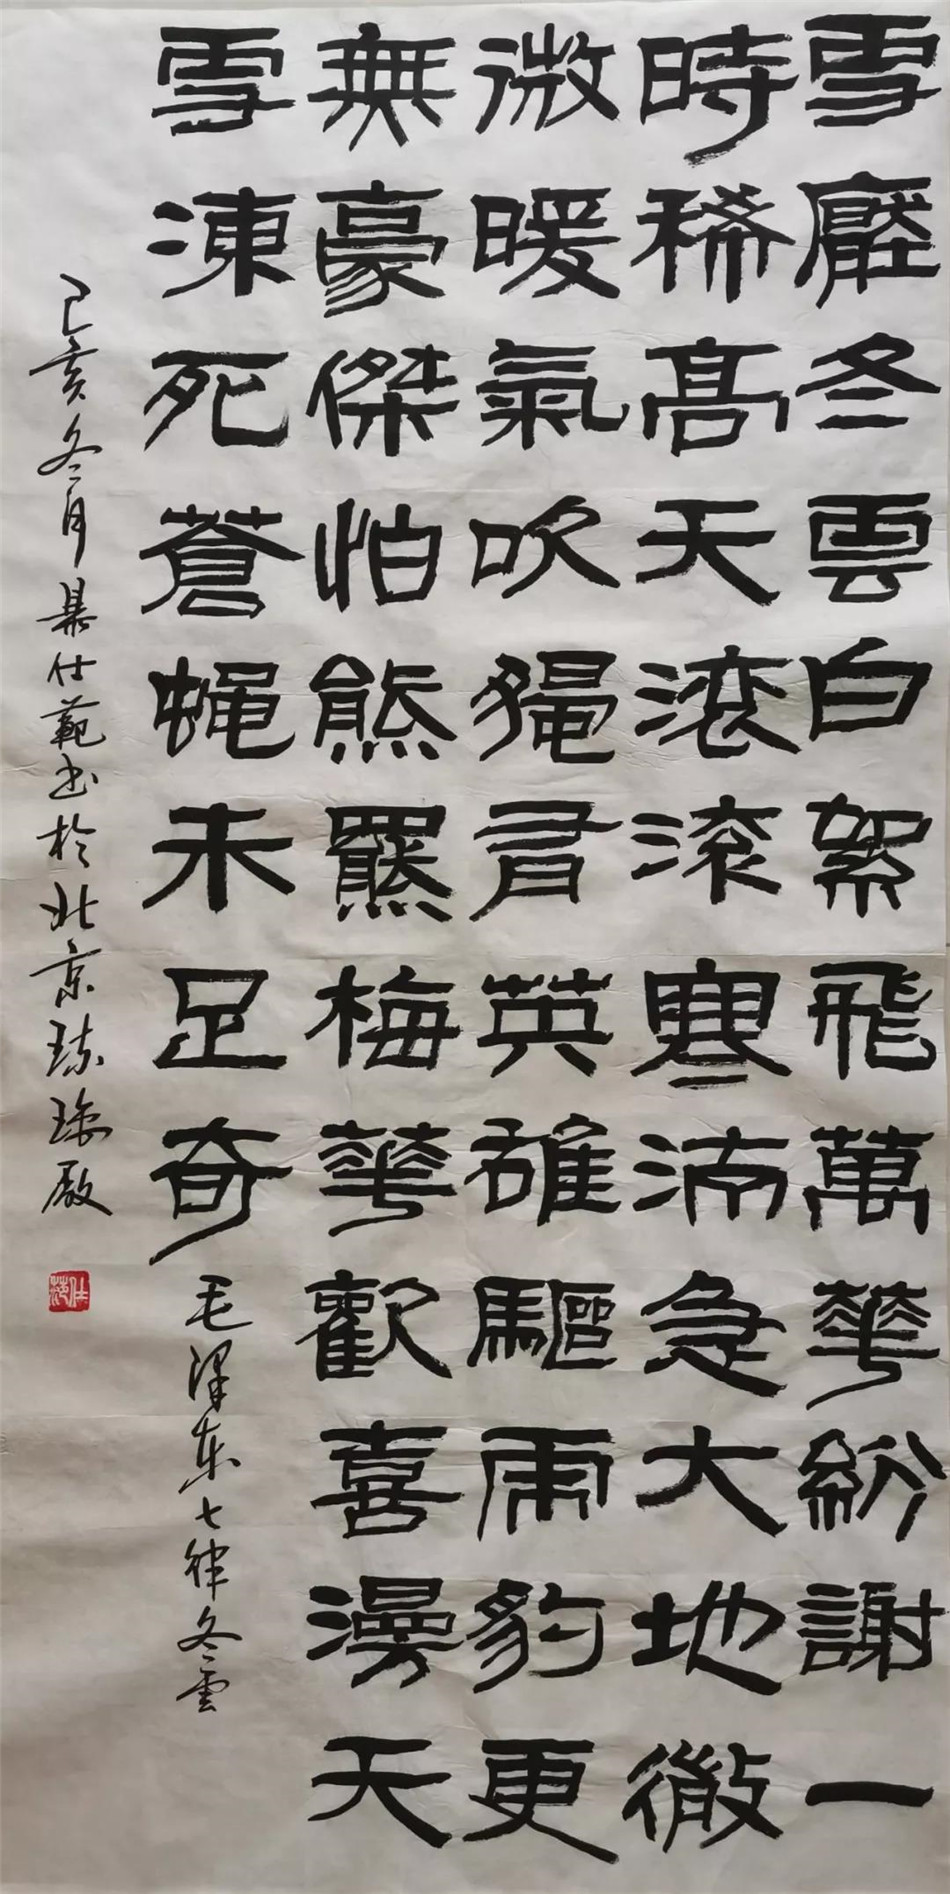 雪壓冬雲白絮飛萬華紛謝一
時稀髙天滾滾寒流急大地微
微暖氣吹獨有英雄驅虎豹更
無豪傑怕熊羆梅華歡喜漫天
雪凍死蒼蝇未足奇
毛泽东七律冬雲
己亥冬月仕範书於北京琉璃厰
仕範